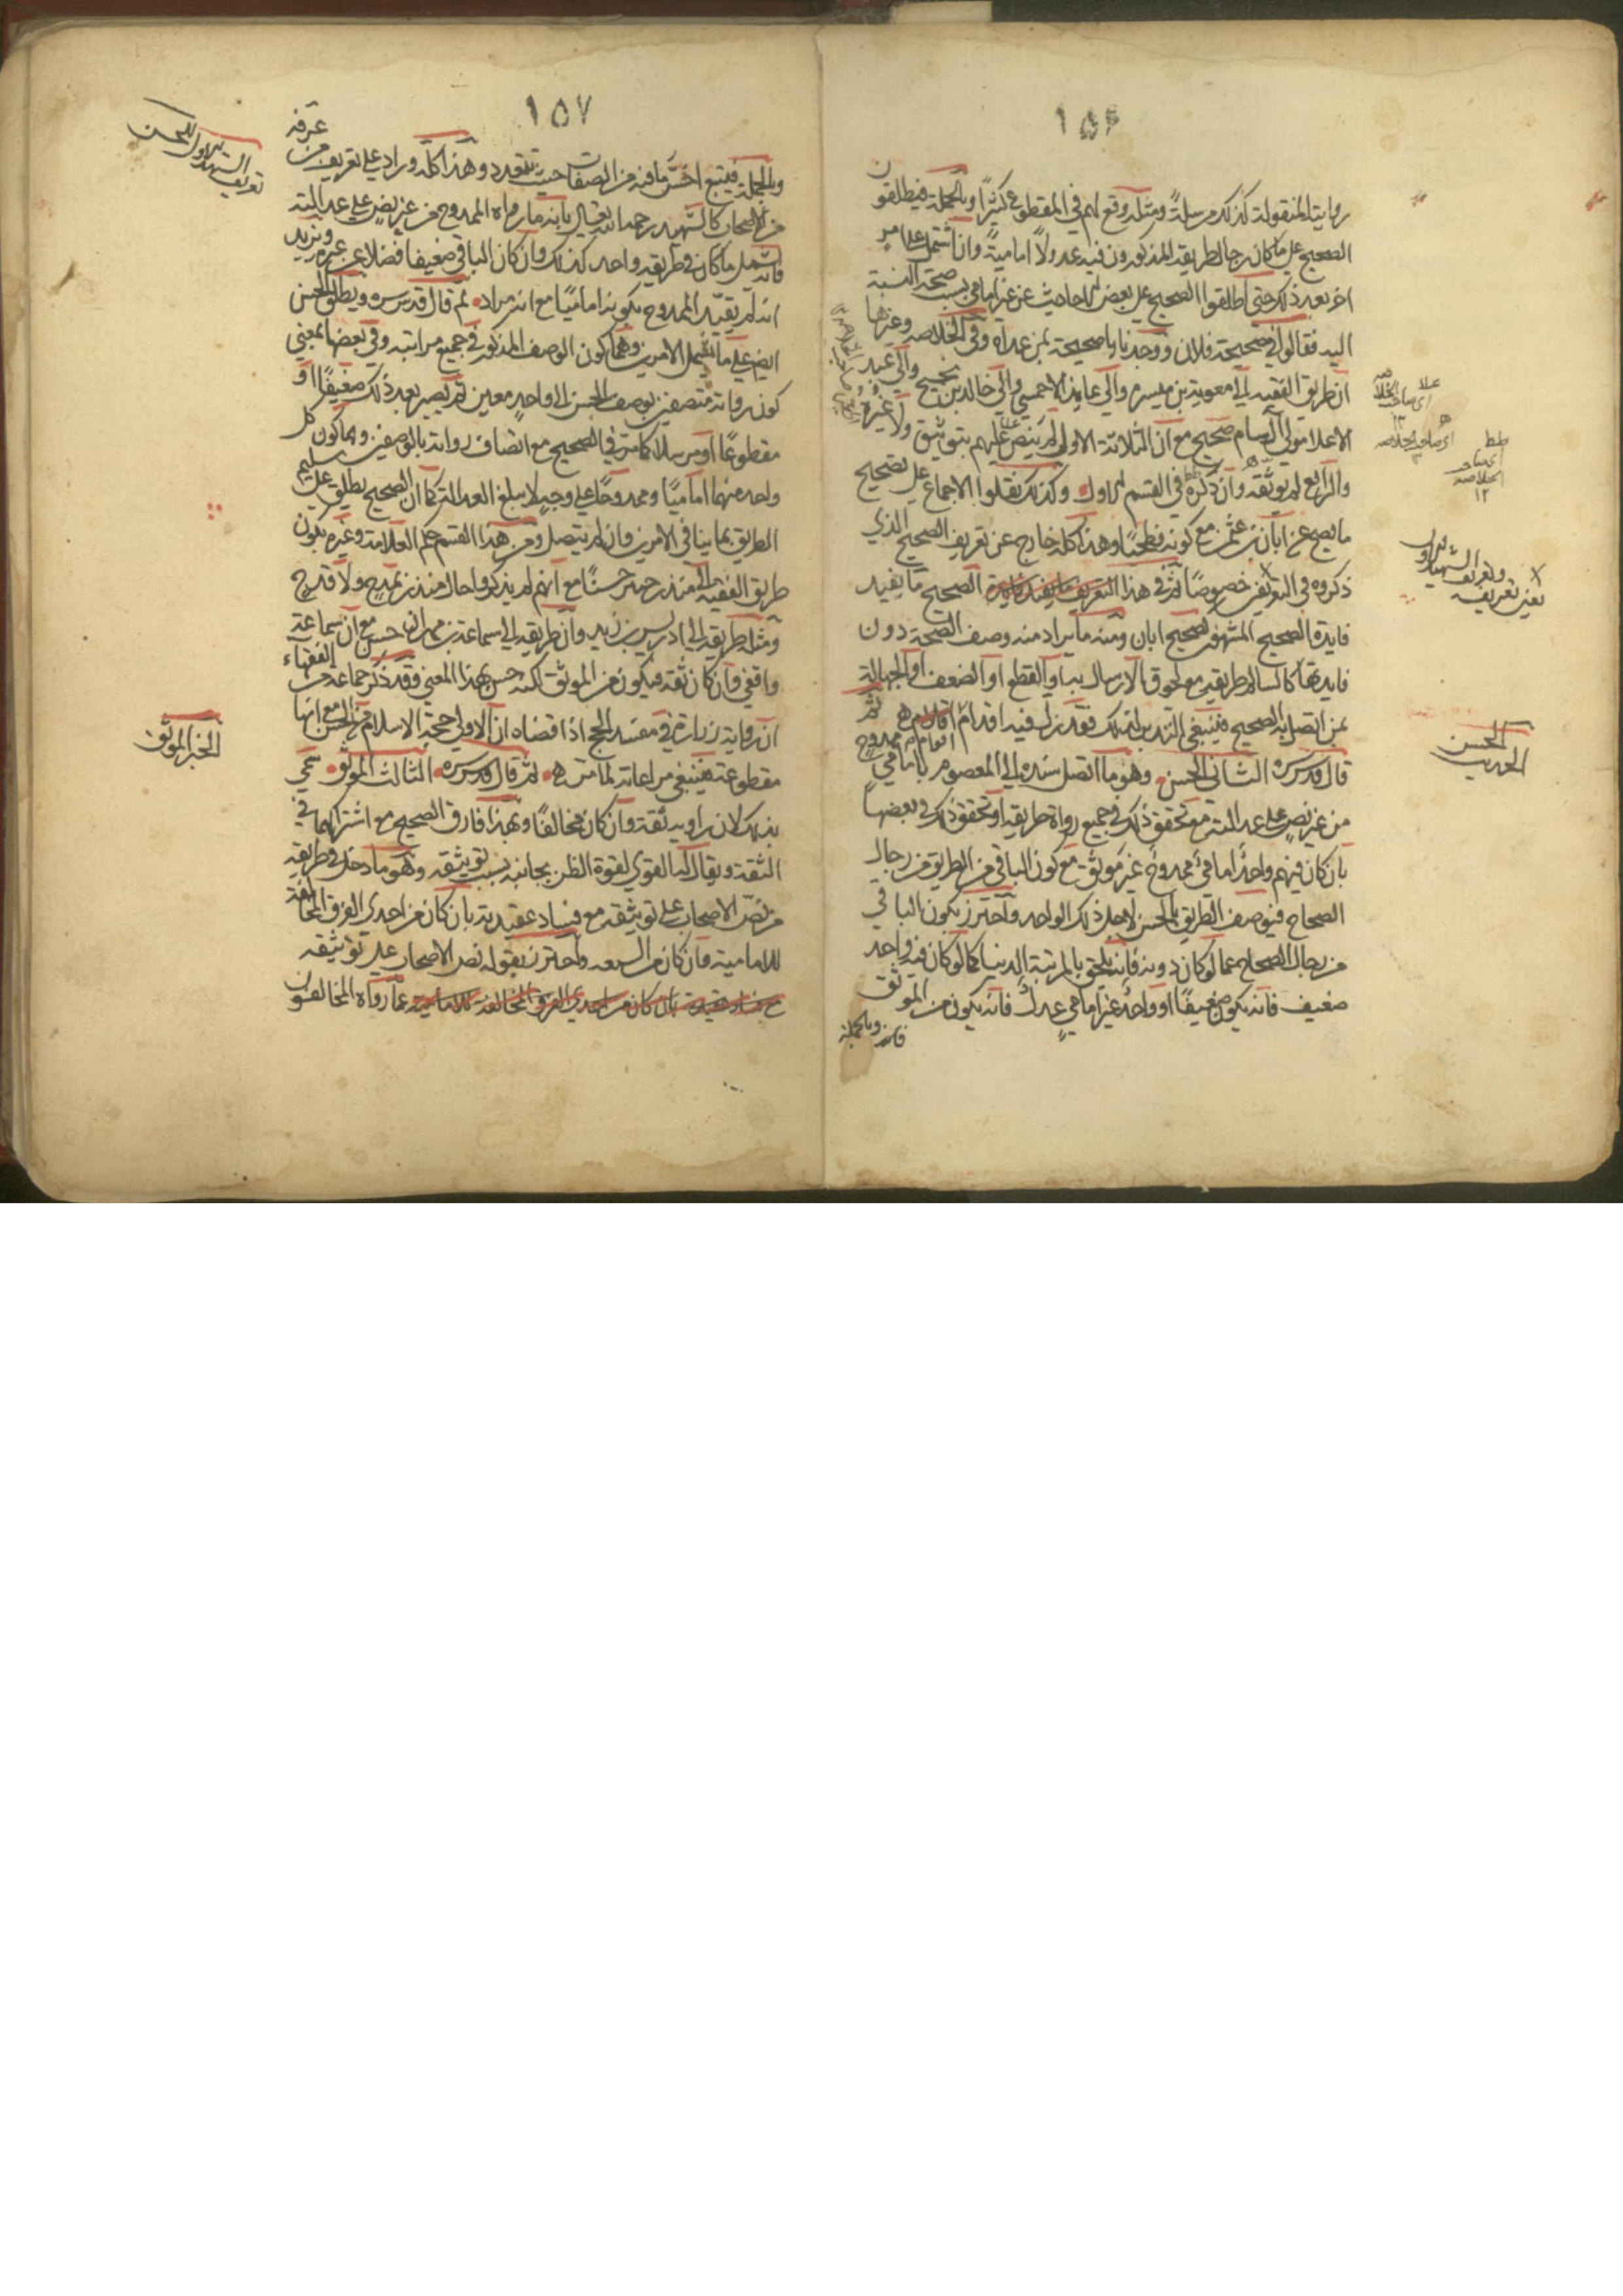 ١٥٦
روايته المنقولة كذلك مرسلةً ومثله وقع لهم في المقطوع كثيرًا وبالجملة فيطلقون
الصحيح على ما كان رجال طريقه المذكورون فيه عدولًا اماميةً وان اشتمل على امر
اخر بعد ذلك حتى اطلقوا الصحيح على بعض الاحاديث عن غير امامي بسبب صحة النسبة
اليه فقالوا في صحيحة فلان ووجدناها صحيحة بمن عداه وفي الخلاصه وغيرها
ان طريق الفقيه الى معوية بن ميسره والى عايذ الاحمسي والى خالد بن نجيح والى عبد
الاعلا مولى آل سام صحيح مع ان الثلاثة الاول لم ينص عليهم بتوثيق ولا غيره
والرابع لم يوثقه وان ذكره في القسم الاول وكذلك نقلوا الاجماع على تصحيح
ما يصح عن ابان بن عثمن مع كونه فطحيًا وهذا كله خارج عن تعريف الصحيح الذي
ذكروه في التعريفين خصوصًا ثم في هذا الصحيح ما يفيد
فايدة الصحيح المشهور كصحيح ابان ومنه ما يراد منه وصف الصحة دون
فايدتها كالسالم طريقه مع لحوق الارسال به او القطع او الضعف او الجهالة
بمن اتصل به الصحيح فينبغي التدبر لذلك فقد زل فيه اقدام اقوام ثم
قال قدس سره الثاني الحسن وهو ما اتصل سنده الى المعصوم بامامي ممدوح
من غير نص على عدالته مع تحقق ذلك في جميع رواة طريقه او تحقق ذلك في بعضها
بان كان فيهم واحد امامي ممدوح غير موثق مع كون الباقي من الطريق من رجال
الصحاح فيوصف الطريق بالحسن لاجل ذلك الواحد واحترز بكون الباقي
من رجال الصحاح عما لو كان دونه فانه يلحق بالمرتبة الدنيا كما لو كان فيه واحد
ضعيف فانه يكون ضعيفًا او واحد غير امامي عدل فانه يكون من الموثق
وبالجملة
اى صاحب الخلاصه
اى صاحب الخلاصه
١٢
يعني تعريفه وتعريف الشهيد الاول
الحسن
الحديث
١٥٧
وبالجملة فيتبع اخس ما فيه من الصفات حيث تتعدد وهذا كله وراد على تعريف من عرفه
من الاصحاب كالشهيد رحمه الله فقال بانه ما رواه الممدوح من غير نص على عدالته
فانه يشمل ما كان في طريقه واحد كذلك وان كان الباقي ضعيفا فضلا عن غيره ويزيد
انه لم يقيد الممدوح بكونه اماميًا مع انه مراد ثم قال قدس سره ويطلق الحسن
ايضا على ما يشمل الامرين وهما كون الوصف المذكور في جميع مراتبه وفي بعضها بمعنى
كون رواته متصفين بوصف الحسن الى واحد معين ثم يصير بعد ذلك ضعيفًا او
مقطوعًا او مرسلا كما مر في الصحيح مع اتصاف رواته بالوصفين وهما كون كل
واحد منهما اماميًا وممدوحًا على وجه لا يبلغ العدالة كما ان الصحيح يطلق على سليم
الطريق بما ينافي الامرين وان لم يتصل ومن هذا القسم حكم العلامة وغيره بكون
طريق الفقيه الى منذر جيفر حسنًا مع انهم لم يذكروا حال منذر بمدح ولا قدح
ومثله طريقه الى ادريس بن زيد وان طريقه الى سماعة بن مهران حسن مع ان سماعة
واقفي وان كان ثقة فيكون من الموثق لكنه حسن بهذا المعنى وقد ذكر جماعة من الفقهاء
ان رواية زرارة في مفسد الحج اذا قضاه ان الاولى حجة الاسلام من الحسن مع انها
مقطوعة فينبغي مراعاة ما مر ثم قال قدس سره الثالث الموثق سمي
بذلك لان راويه ثقة وان كان مخالفًا وبهذا فارق الصحيح مع اشتراكهما في
الثقة ويقال له القوي لقوة الظن بجانبه بسبب توثيقه وهو ما دخل في طريقه
من نص الاصحاب على توثيقه مع فساد عقيدته بان كان من احدى الفرق المخالفة
للامامية وان كان من الشيعه واحترز بقوله نص الاصحاب على توثيقه
عما رواه المخالفون
تعريف الشهيد الاول للحسن
الخبر الموثق